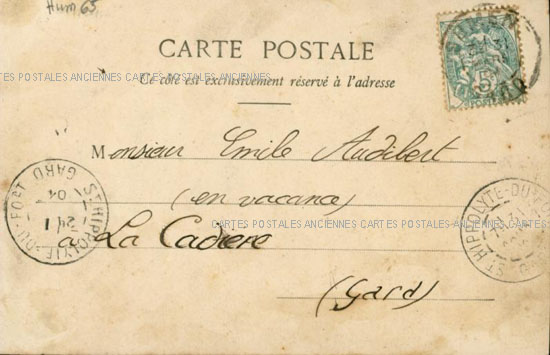 Hum 65
CARTE POSTALE
CARTES POSTALES ANCIENNES CARTES POSTALES ANCIENNES
Ce côté est exclusivement réservé à l'adresse
5
Monsieur Emile Audibert
(en vacance)
CARTES POSTALES ANCIENNES CARTES POSTALES ANCIENNES
à La Cadière
(Gard)
ST HIPPOLYTE-DU-FORT
24 1
04
GARD
ST HIPPOLYTE-DU-